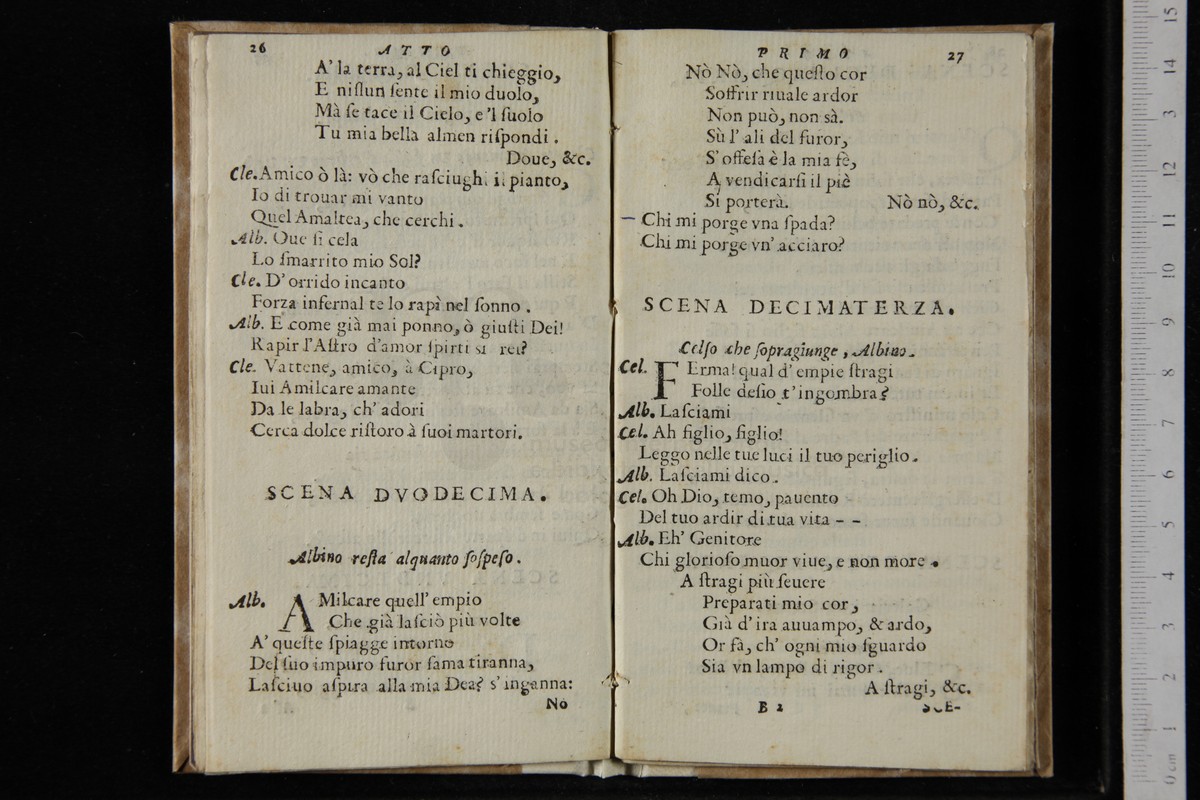 26 ATTO
A' la terra, al Ciel ti chieggio,
E nissun sente il mio duolo,
Mà se tace il Cielo, e 'l suolo
Tu mia bella almen rispondi.
Doue, &c.
Cle. Amico ò là: vò che rasciughi il pianto,
Io di trouar mi vanto
Quel Amaltea, che cerchi.
Alb. Oue si cela
Lo smarrito mio Sol?
Cle. D' orrido incanto
Forza infernal te lo rapì nel sonno.
Alb. E come già mai ponno, ò giusti Dei!
Rapir l'Astro d'amor spirti si rei?
Cle. Vattene, amico, à Cipro,
Iui Amilcare amante
Da le labra, ch' adori
Cerca dolce ristoro à suoi martori.
SCENA DVODECIMA.
Albino resta alquanto sospeso.
Alb. AMilcare quell' empio
Che già lasciò più volte
A' queste spiagge intorno
Del suo impuro furor fama tiranna,
Lasciuo aspira alla mia Dea? s'inganna:
No
PRIMO 27
Nò Nò, che questo cor
Soffrir riuale ardor
Non può, non sà.
Sù l' ali del furor,
S' offesa è la mia fè,
A vendicarsi il piè
Si porterà. Nò nò, &c.
Chi mi porge vna spada?
Chi mi porge vn' acciaro?
SCENA DECIMATERZA.
Celso che sopragiunge, Albino.
Cel. FErma! qual d' empie stragi
Folle desio t' ingombra?
Alb. Lasciami
Cel. Ah figlio, figlio!
Leggo nelle tue luci il tuo periglio.
Alb. Lasciami dico.
Cel. Oh Dio, temo, pauento
Del tuo ardir di tua vita - -
Alb. Eh' Genitore
Chi glorioso muor viue, e non more.
A stragi più seuere
Preparati mio cor,
Già d' ira auuampo, & ardo,
Or fà, ch' ogni mio sguardo
Sia vn lampo di rigor.
A stragi, &c.
B 2 SCE-
0 cm 1 2 3 4 5 6 7 8 9 10 11 12 13 14 15